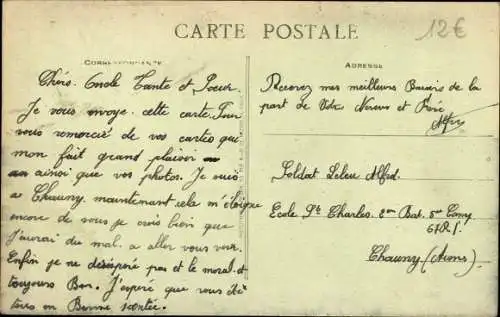 CARTE POSTALE
12€
CORRESPONDANCE
Chers Oncle Tante et Soeur.
Je vous envoye cette carte Pour
vous remercié de vos cartes qui
mon fait grand plaisir
ainsi que vos photos. Je suis
a Chauny maintenant cela m'éloigne
encore de vous je crois bien que
J'aurai du mal a aller vous voir.
Enfin je ne désespère pas et le moral et
toujours Bon. J'espère que vous êtes
tous en Bonne santée.
ADRESSE
Recevez mes meilleurs Baisers de la
part de Votre Neveu et Frère
Alfred
Soldat Leleu Alfred.
Ecole St Charles. 2em Bat. 5em Comp
67 R.I.
Chauny (Aisne)